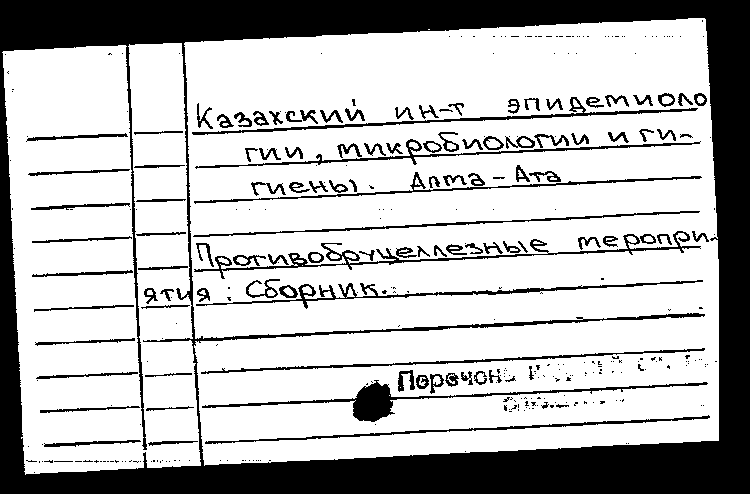 Казахский ин-т эпидемиоло
гии, микробиологии и ги-
гиены. Алма-Ата.
Противобруцеллезные меропри-
ятия: Сборник.
Перечень